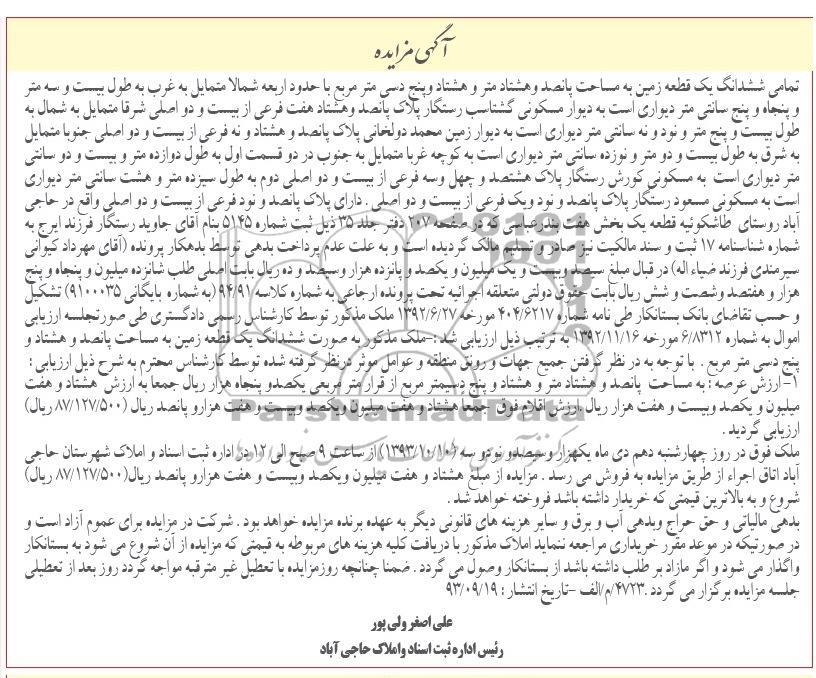 آگهی مزایده
تمامی ششدانگ یک قطعه زمین به مساحت پانصد وهشتاد متر و هشتاد وپنج دسی متر مربع با حدود اربعه شمالا متمایل به غرب به طول بیست و سه متر
و پنجاه و پنج سانتی متر دیواری است به دیوار مسکونی گشتاسب رستگار پلاک پانصد وهشتاد هفت فرعی از بیست و دو اصلی شرقا متمایل به شمال به
طول بیست و پنج متر و نود و نه سانتی متر دیواری است به دیوار زمین محمد دولخانی پلاک پانصد و هشتاد و نه فرعی از بیست و دو اصلی جنوبا متمایل
به شرق به طول بیست و دو متر و نوزده سانتی متر دیواری است به کوچه غربا متمایل به جنوب در دو قسمت اول به طول دوازده متر و بیست و دو سانتی
متر دیواری است به مسکونی کورش رستگار پلاک هشتصد و چهل وسه فرعی از بیست و دو اصلی دوم به طول سیزده متر و هشت سانتی متر دیواری
است به مسکونی مسعود رستگار پلاک پانصد و نود ویک فرعی از بیست و دو اصلی . دارای پلاک پانصد و نود فرعی از بیست و دو اصلی واقع در حاجی
آباد روستای طاشکوئیه قطعه یک بخش هفت بندرعباسی که در صفحه ۲۰۷ دفتر جلد ۳۵ ذیل ثبت شماره ۵۱۴۵ بنام آقای جاوید رستگار فرزند ایرج به
شماره شناسنامه ۱۷ ثبت و سند مالکیت نیز صادر و تسلیم مالک گردیده است و به علت عدم پرداخت بدهی توسط بدهکار پرونده (آقای مهرداد کیوانی
سیرمندی فرزند ضیاء اله) در قبال مبلغ سیصد وبیست و یک میلیون و یکصد و پانزده هزار وسیصد و ده ریال بابت اصلی طلب شانزده میلیون و پنجاه و پنج
هزار و هفتصد وشصت و شش ریال بابت حقوق دولتی متعلقه اجرائیه تحت پرونده ارجاعی به شماره کلاسه ۹۴/۹۱ (به شماره بایگانی ۹۱۰۰۰۳۵) تشکیل
و حسب تقاضای بانک بستانکار طی نامه شماره ۴۰۴/۶۲۱۷ مورخه ۱۳۹۲/۶/۲۷ ملک مذکور توسط کارشناس رسمی دادگستری طی صورتجلسه ارزیابی
اموال به شماره ۶/۸۳۱۲ مورخه ۱۳۹۲/۱۱/۱۶ به ترتیب ذیل ارزیابی شد :-ملک مذکور به صورت ششدانگ یک قطعه زمین به مساحت پانصد و هشتاد و
پنج دسی متر مربع . با توجه به در نظر گرفتن جمیع جهات و رونق منطقه و عوامل موثر درنظر گرفته شده توسط کارشناس محترم به شرح ذیل ارزیابی :
۱- ارزش عرصه : به مساحت پانصد و هشتاد متر و هشتاد و پنج دسیمتر مربع از قرار متر مربعی یکصدو پنجاه هزار ریال جمعا به ارزش هشتاد و هفت
میلیون و یکصد وبیست و هفت هزار ریال .ارزش اقلام فوق جمعا هشتاد و هفت میلیون ویکصد وبیست و هفت هزارو پانصد ریال (۸۷/۱۲۷/۵۰۰ ریال)
ارزیابی گردید .
ملک فوق در روز چهارشنبه دهم دی ماه یکهزار وسیصدو نودو سه (۱۳۹۳/۱۰/۱۰) از ساعت ۹ صبح الی ۱۲ در اداره ثبت اسناد و املاک شهرستان حاجی
آباد اتاق اجراء از طریق مزایده به فروش می رسد . مزایده از مبلغ هشتاد و هفت میلیون ویکصد وبیست و هفت هزارو پانصد ریال(۸۷/۱۲۷/۵۰۰ ریال)
شروع و به بالاترین قیمتی که خریدار داشته باشد فروخته خواهد شد .
بدهی مالیاتی و حق حراج وبدهی آب و برق و سایر هزینه های قانونی دیگر به عهده برنده مزایده خواهد بود . شرکت در مزایده برای عموم آزاد است و
در صورتیکه در موعد مقرر خریداری مراجعه ننماید املاک مذکور با دریافت کلیه هزینه های مربوطه به قیمتی که مزایده از آن شروع می شود به بستانکار
واگذار می شود و اگر مازاد بر طلب داشته باشد از بستانکار وصول می گردد . ضمنا چنانچه روزمزایده با تعطیل غیر مترقبه مواجه گردد روز بعد از تعطیلی
جلسه مزایده برگزار می گردد .۴۷۲۳/م/الف -تاریخ انتشار : ۹۳/۰۹/۱۹
علی اصغر ولی پور
رئیس اداره ثبت اسناد واملاک حاجی آباد
ParsNamadData